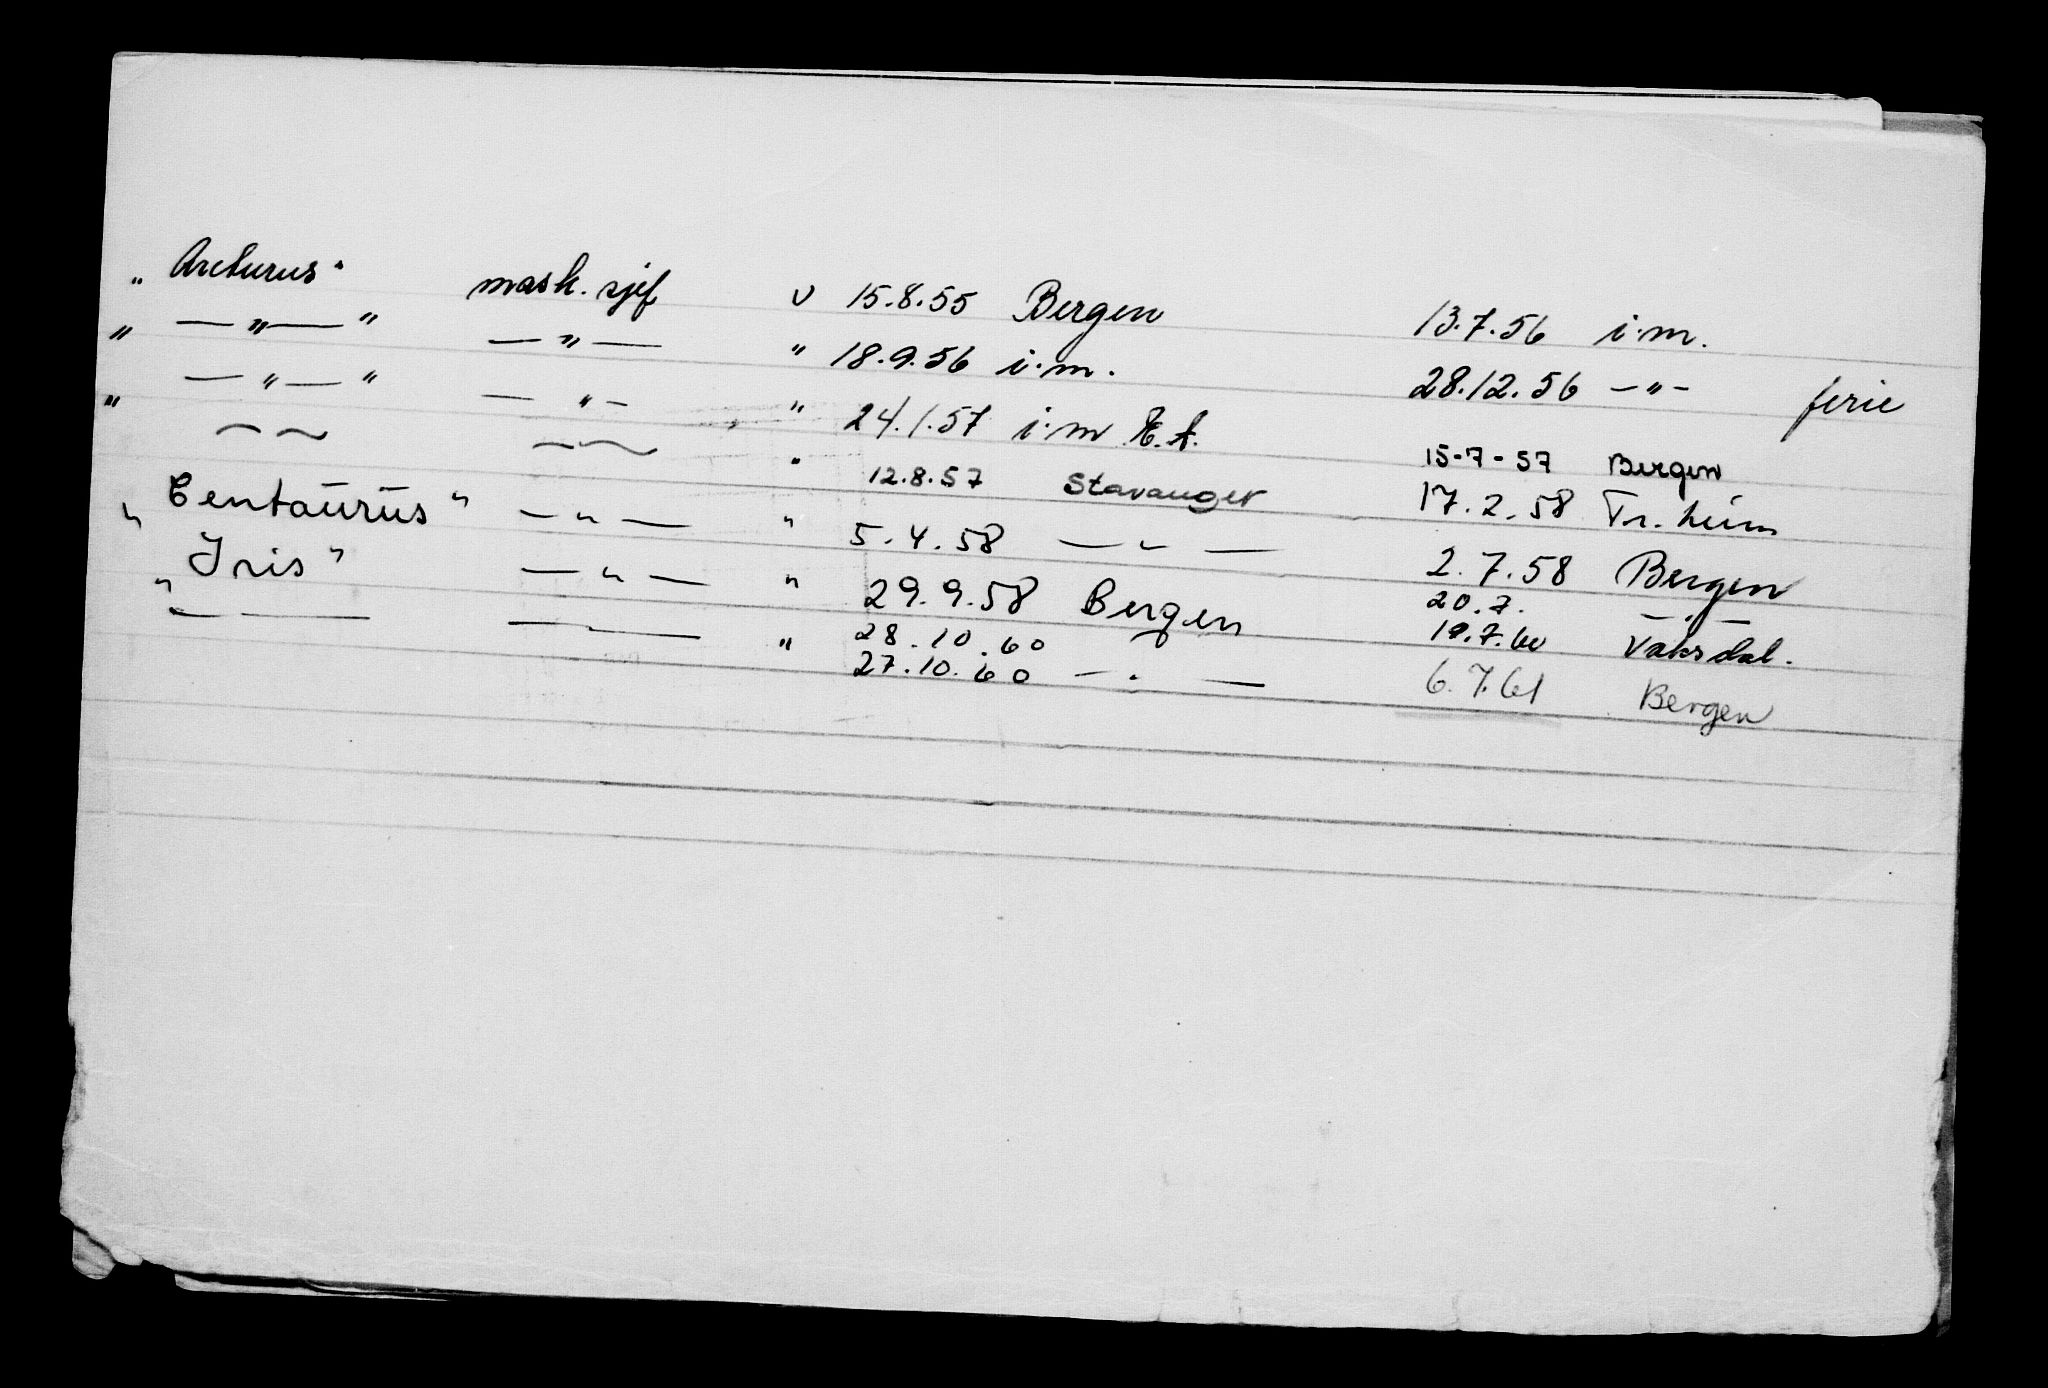 „ Arcturus “ mask. sjef v 15.8.55 Bergen 13.7.56 i.m.
„ — „ — “ — „ — " 18.9.56 i.m. 28.12.56 — " — ferie
„ — „ — “ — „ — " 24.1.57 i.m 15-7-57 Bergen
— — — — " 12.8.57 Stavanger 17.2.58 Tr.heim
„ Centaurus “ — „ — " 5.4.58 — " — 2.7.58 Bergen
„ Iris “ — „ — " 29.9.58 Bergen 20.7.
19.7.60 Vaksdal.
— — — — " 28.10.60
27.10.60 — " — 6.7.61 Bergen